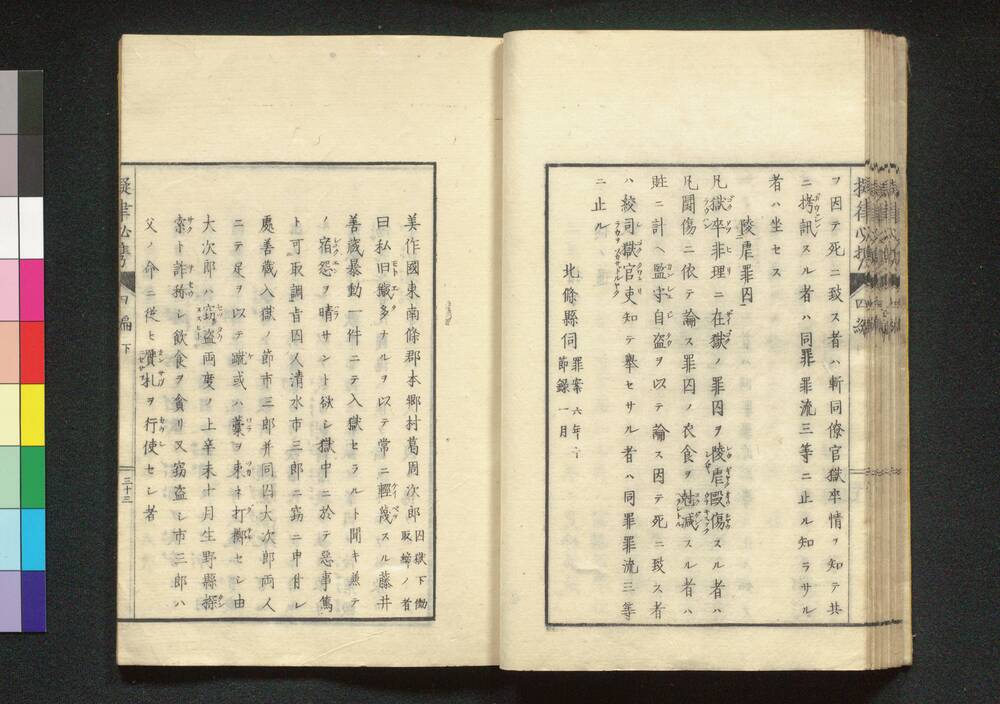 ヲ因テ死ニ致ス者ハ斬同僚官獄卒情ヲ知テ共
ニ拷訊スル者ハ同罪罪流三等ニ止ル知ラサル
者ハ坐セス
陵虐罪囚
凡獄卒非理ニ在獄ノ罪囚ヲ陵虐毆傷スル者ハ
凡鬪傷ニ依テ論ス罪囚ノ衣食ヲ尅減スル者ハ
贓ニ計ヘ監守自盗ヲ以テ論ス因テ死ニ致ス者
ハ絞司獄官吏知テ舉セサル者ハ同罪罪流三等
ニ止ル
北條縣伺 罪案 六年
節録 一月
擬律必携
四編
美作國東南條郡本郷村葛周次郎 囚獄下働
取締ノ者
曰私旧穢多ナルヲ以テ常ニ輕篾スル藤井
善蔵暴動一件ニテ入獄セラルト聞キ兼テ
ノ宿怨ヲ晴サント欲シ獄中ニ於テ惡事篤
ト可取調旨囚人清水市三郎ニ窃ニ申付シ
處善蔵入獄ノ節市三郎并同囚大次郎両人
ニテ足ヲ以テ蹴或ハ藁ヲ束ネ打擲セシ由
大次郎ハ窃盗両度ノ上辛未十月生野縣探
索ト詐稱シ飲食ヲ貪リ又窃盗シ市三郎ハ
父ノ命ニ従ヒ贋札ヲ行使セシ者
擬律必携
四編下
三十三